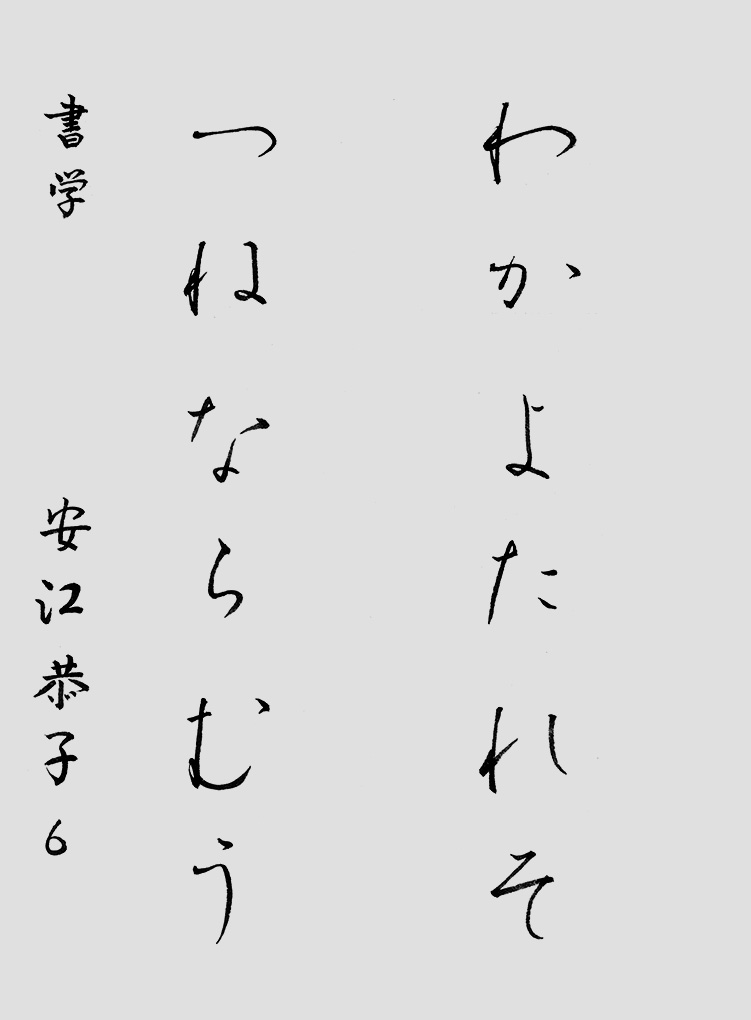 わかよたれそ
つねならむう
書学 安江恭子 6